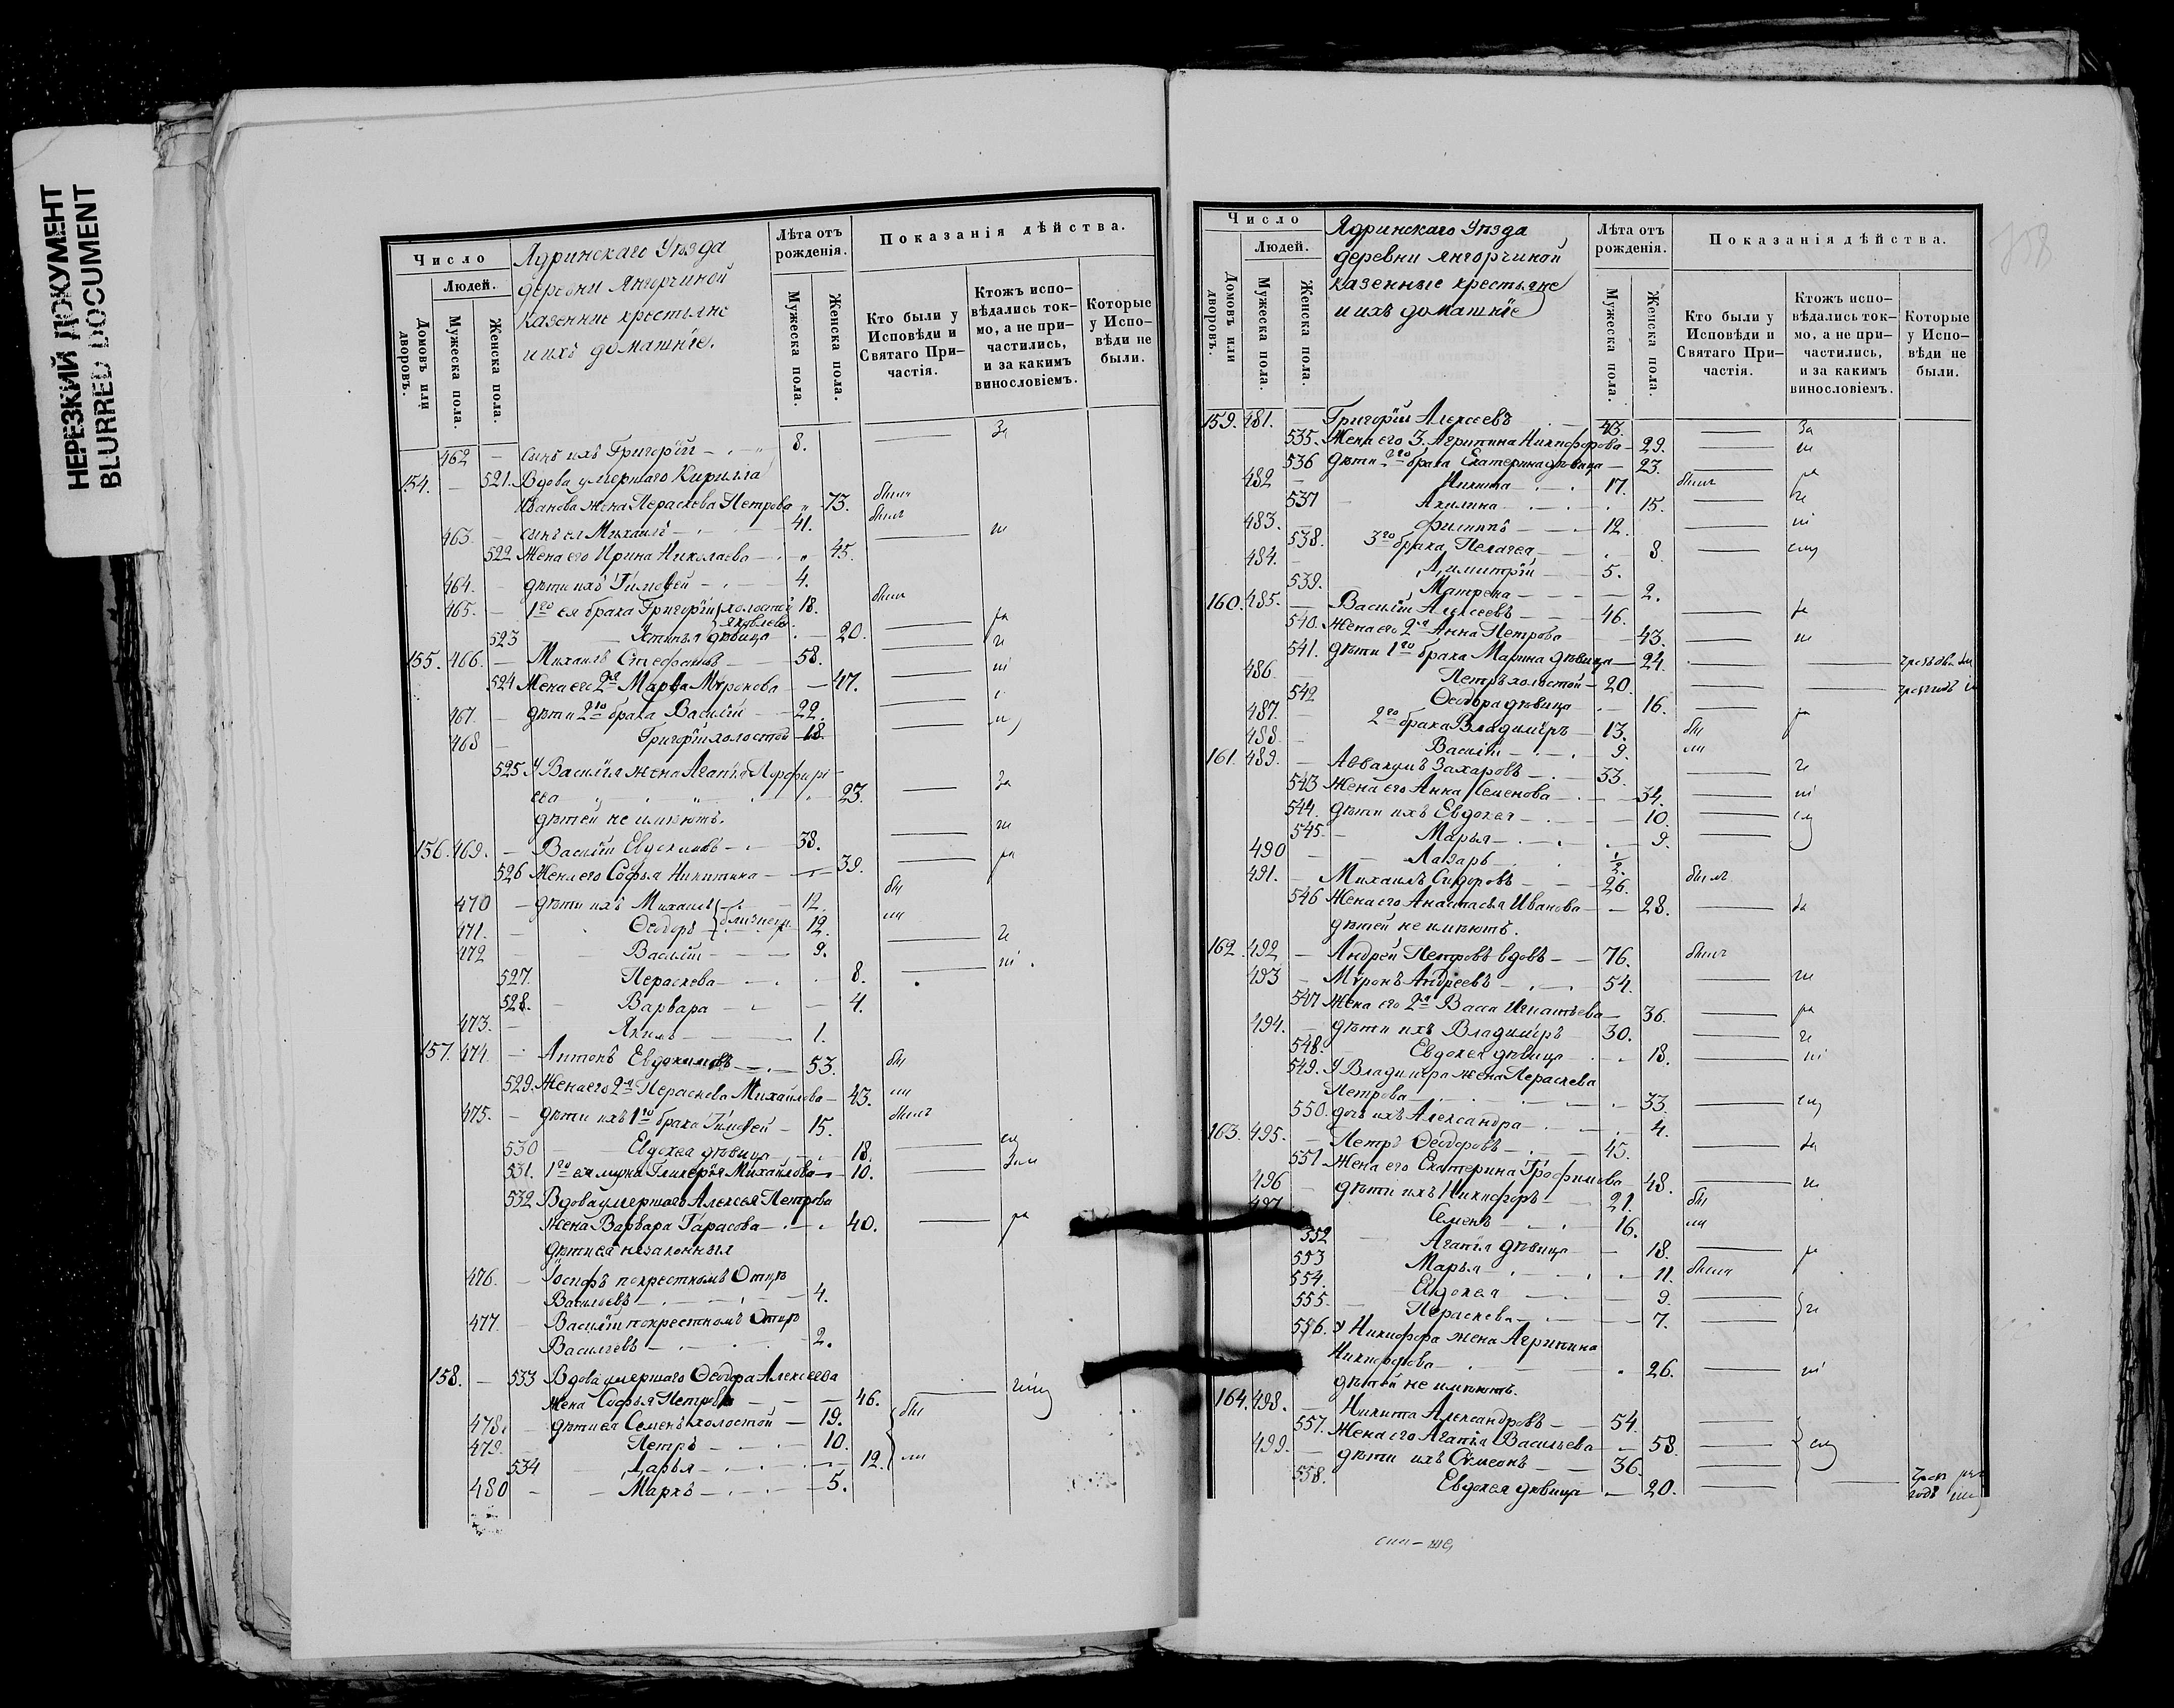 НЕРЕЗКИЙ ДОКУМЕНТ
BLURRED DOCUMENT
Число
Людей.
Домовъ или дворовъ.
Мужеска пола.
Женска пола.
Ядринскаго Уѣзда
деревни Янгорчиной
казенные крестьяне
и ихъ домашніе.
Лѣта отъ рожденія.
Мужеска пола.
Женска пола.
Показанія дѣйства.
Кто были у Исповѣди и Святаго Причастія.
Ктожъ исповѣдались токмо, а не причастились, и за какимъ винословіемъ.
Которые у Исповѣди не были.
462 — сынъ ихъ Григорій 8. За
154. — 521. Вдова умершаго Кирилла
Иванова жена Параскева Петрова 73. была
463. — сынъ ея Михаилъ 41. былъ
522 Жена его Ирина Николаева 45.
464. — дѣти ихъ Тимоѳей 4.
465. — 1го ея брака Григорій холостой 18. былъ
Яковлевы
523 Устинья дѣвица 20.
155. 466. — Михаилъ Стефановъ 58.
524 Жена его 2я Марѳа Мѵронова 47.
467. — дѣти 2го брака Василій 22.
468 — Григорій холостой 18.
525 У Василія жена Агаѳія Порфирі-
ева 23. За
дѣтей не имѣютъ.
156. 469. — Василій Евдокимовъ 38.
526 Жена его Софья Никитина 39.
470 — дѣти ихъ Михаилъ 12. бы
близнецы
471. — Ѳеодоръ 12. ли
472 — Василій 9.
527. Параскева 8.
528. Варвара 4.
473. — Якимъ 1.
157. 474. — Антонъ Евдокимовъ 53. бы
529. Жена его 2я Параскева Михайлова 43. ли
475. — дѣти ихъ 1го брака Тимоѳей 15. былъ
530 Евдокея дѣвица 18.
531. 1го ея мужа Гликерья Михайлова 10.
532 Вдова умершаго Алексѣя Петрова
жена Варвара Тарасова 40.
дѣти ея незаконныя
476. — Іосифъ по крестномъ Отцѣ
Васильевъ 4.
477 — Василій по крестномъ Отцѣ
Васильевъ 2.
158. — 533 Вдова умершаго Ѳеодора Алексѣева
жена Софья Петрова 46.
478. — дѣти ея Семенъ холостой 19. бы
479. — Петръ 10.
534 Дарья 12. ли
480 — Маркъ 5.
Число
Людей.
Домовъ или дворовъ.
Мужеска пола.
Женска пола.
Ядринскаго Уѣзда
деревни Янгорчиной
казенные крестьяне
и ихъ домашніе
Лѣта отъ рожденія.
Мужеска пола.
Женска пола.
Показанія дѣйства.
Кто были у Исповѣди и Святаго Причастія.
Ктожъ исповѣдались токмо, а не причастились, и за какимъ винословіемъ.
Которые у Исповѣди не были.
159. 481. — Григорій Алексѣевъ 43. За
535. Жена его 3. Агрипина Никифорова 29.
536 Дѣти 2го брака Екатерина дѣвица 23.
482 — Никита 17. былъ
537 Акилина 15.
483. — Филиппъ 12.
538. 3го брака Пелагея 8.
484. — Димитрій 5.
539. Матрена 2.
160. 485. — Василій Алексѣевъ 46.
540. Жена его 2я Анна Петрова 43.
541. дѣти 1го брака Марина дѣвица 24.
486. Петръ холостой 20.
542 Ѳеодора дѣвица 16.
487. — 2го брака Владиміръ 13. бы
488. — Василій 9. ли
161. 489. — Аввакумъ Захаровъ 33.
543 Жена его Анна Семенова 34.
544. дѣти ихъ Евдокея 10.
545. Марья 9.
490 — Лазарь 1/2.
491. — Михаилъ Сидоровъ 26. былъ
546 Жена его Анастасья Иванова 28. За
дѣтей не имѣютъ.
162. 492 — Андрей Петровъ вдовъ 76. былъ
493 — Мѵронъ Андреевъ 54.
547 Жена его 2я Васса Игнатьева 36.
494. — дѣти ихъ Владиміръ 30.
548. Евдокея дѣвица 18.
549. У Владиміра жена Параскева
Петрова 33.
550. дочь ихъ Александра 4.
163. 495. — Петръ Ѳеодоровъ 45. За
551 Жена его Екатерина Трофимова 48.
496 — дѣти ихъ Никифоръ 21. бы
497 Семенъ 16. ли
552 Агаѳія дѣвица 18.
553 Марья 11. была
554. Евдокея 9.
555. Параскева 7.
556. У Никифора жена Агрипина
Никифорова 26.
дѣтей не имѣютъ.
164. 498. — Никита Александровъ 54.
557. Жена его Агаѳія Васильева 58.
499. — дѣти ихъ Сѵмеонъ 36.
558. Евдокея дѣвица 20.